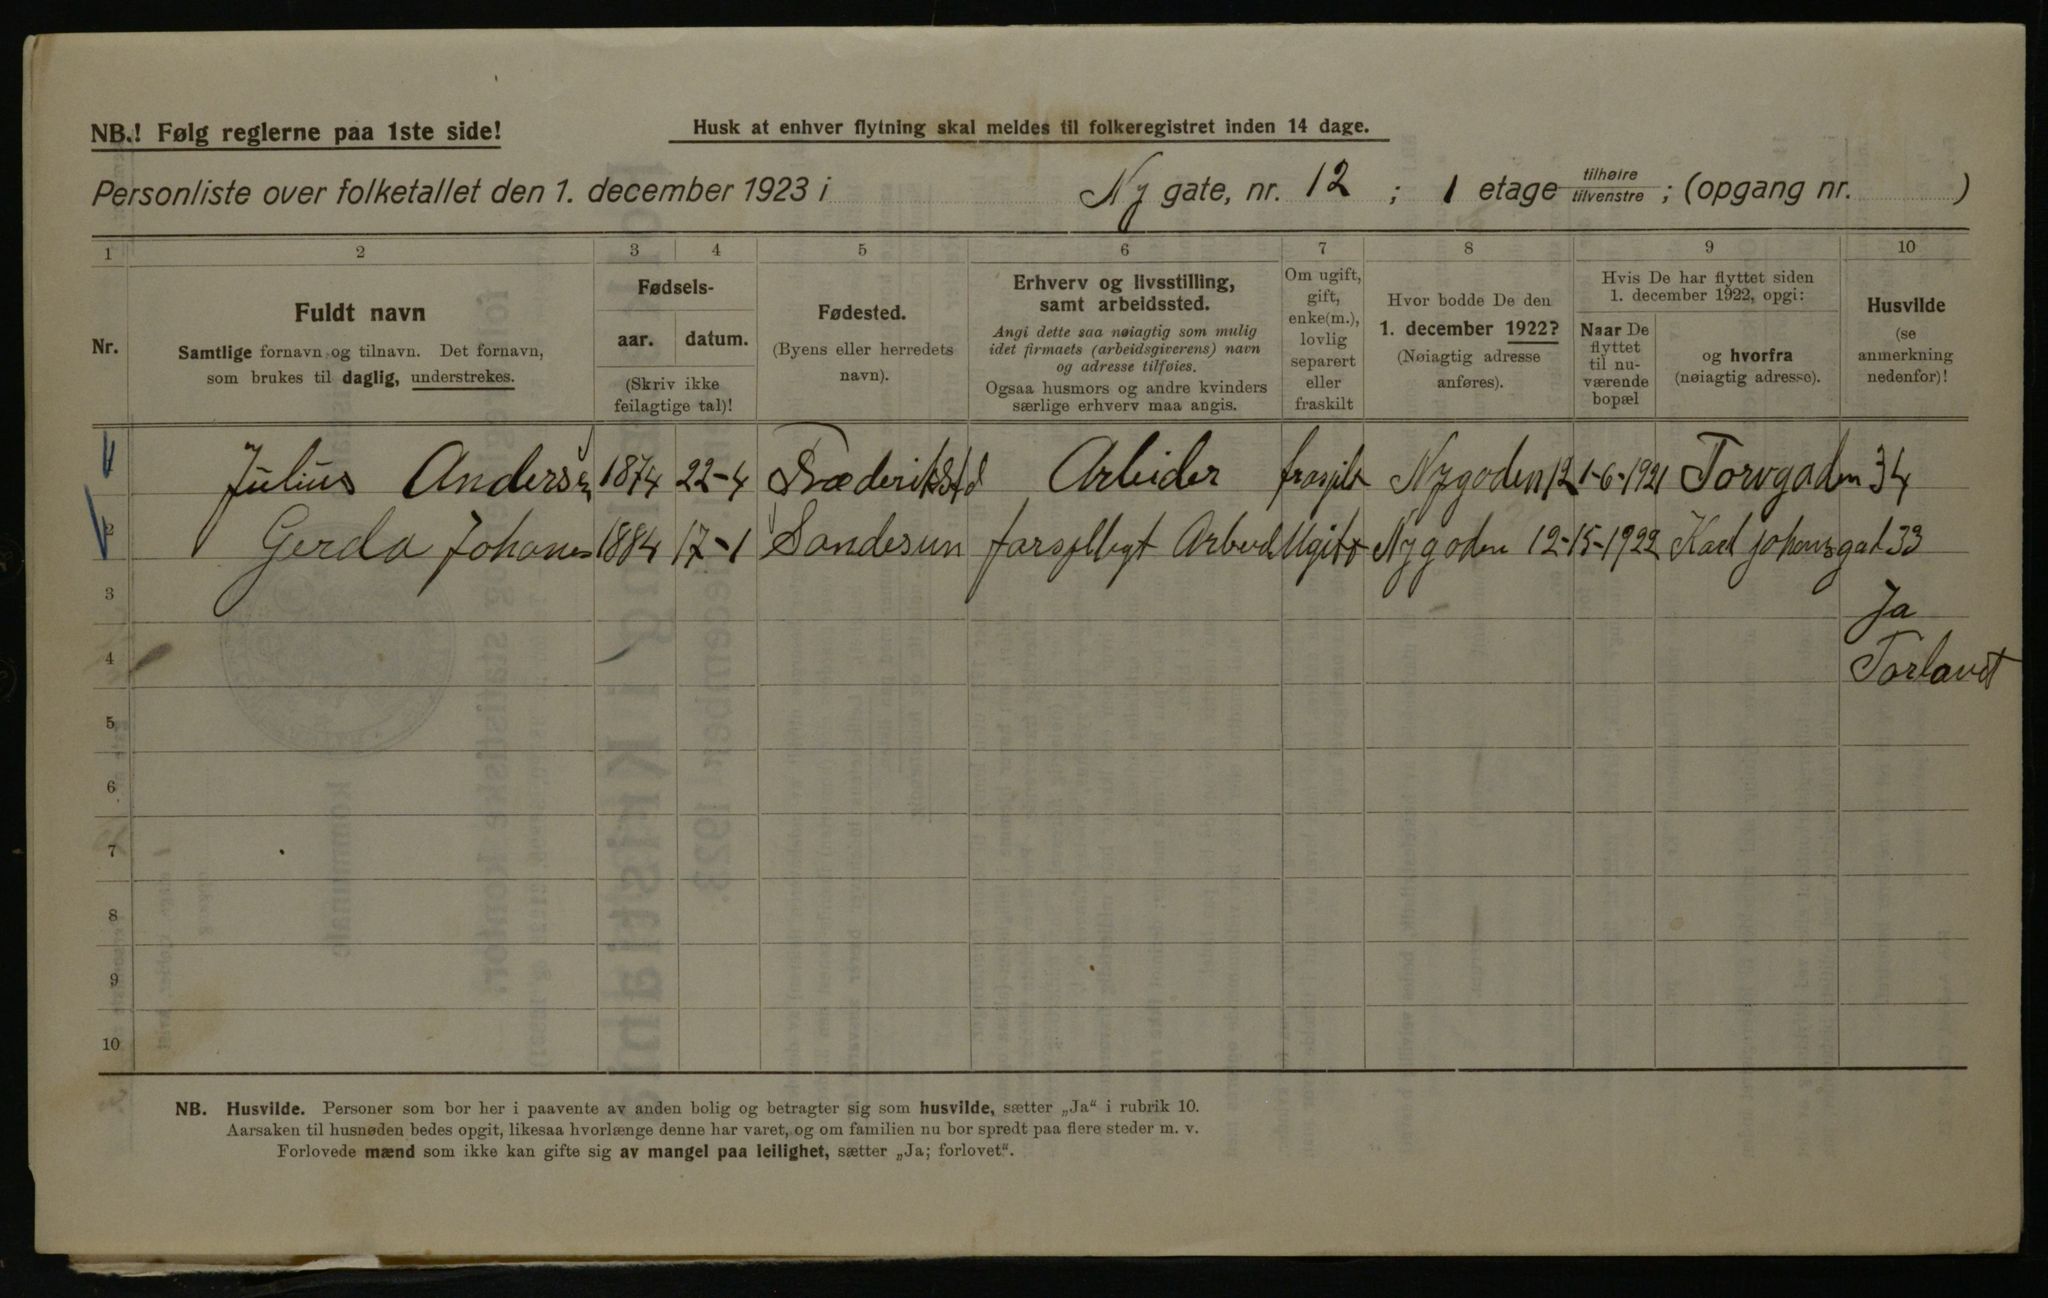 NB.! Følg reglerne paa 1ste side!
Husk at enhver flytning skal meldes til folkeregistret inden 14 dage.
Personliste over folketallet den 1. december 1923 i Ny gate, nr. 12 ; 1 etage tilhøire tilvenstre ; (opgang nr. )
1 2 3 4 5 6 7 8 9 10
Nr.
Fuldt navn
Samtlige fornavn og tilnavn. Det fornavn,
som brukes til daglig, understrekes.
Fødsels-
aar. datum.
(Skriv ikke
feilagtige tal)!
Fødested.
(Byens eller herredets
navn).
Erhverv og livsstilling,
samt arbeidssted.
Angi dette saa nøiagtig som mulig
idet firmaets (arbeidsgiverens) navn
og adresse tilføies.
Ogsaa husmors og andre kvinders
særlige erhverv maa angis.
Om ugift,
gift,
enke(m.),
lovlig
separert
eller
fraskilt
Hvor bodde De den
1. december 1922?
(Nøiagtig adresse
anføres).
Hvis De har flyttet siden
1. december 1922, opgi:
Naar De
flyttet
til nu-
værende
bopæl
og hvorfra
(nøiagtig adresse).
Husvilde
(se
anmerkning
nedenfor)!
1 Julius Andersn 1874 22-4 Fræderikstd Arbeider frasjilt Nygaden 12 1-6-1921 Torvgaden 34
2 Gerda Johanes 1884 17-1 Sandesun Nygaden 12-15-1922 Karl johansgad 33
3 Ja
4 Forlovet
5
6
7
8
9
10
NB. Husvilde. Personer som bor her i paavente av anden bolig og betragter sig som husvilde, sætter „Ja“ i rubrik 10.
Aarsaken til husnøden bedes opgit, likesaa hvorlænge denne har varet, og om familien nu bor spredt paa flere steder m. v.
Forlovede mænd som ikke kan gifte sig av mangel paa leilighet, sætter „Ja; forlovet“.